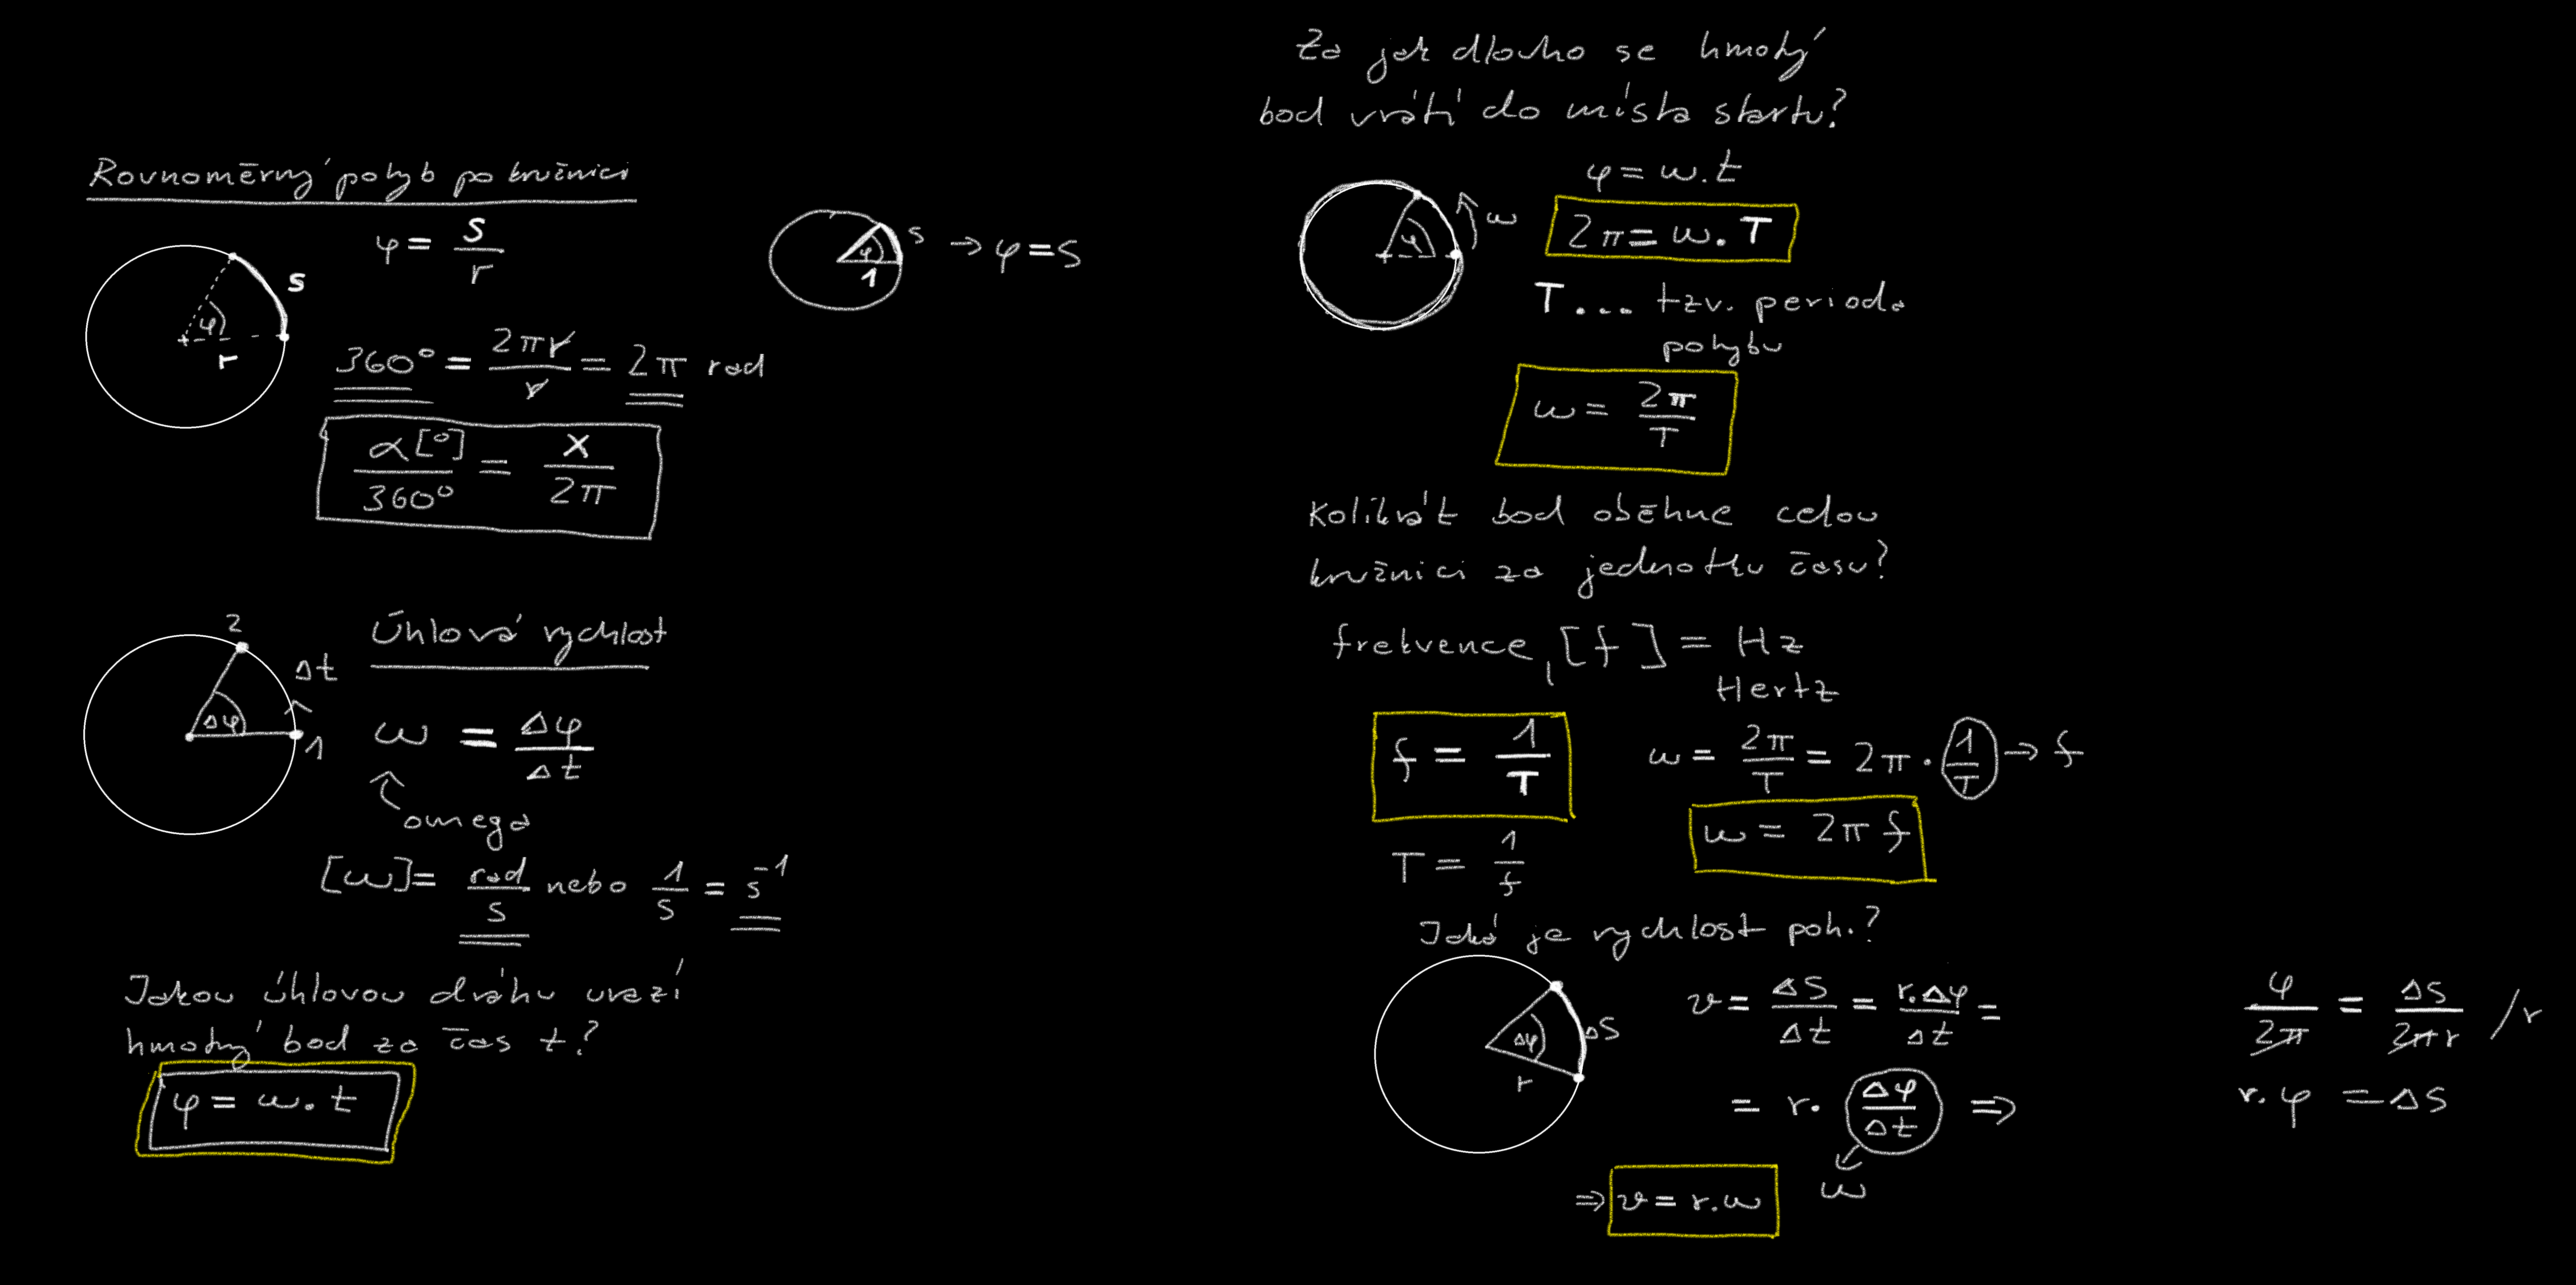 Rovnoměrný pohyb po kružnici
φ = s/r
s
φ
r
s → φ = s
φ
1
360° = 2πr/r = 2π rad
α[°]/360° = x/2π
Úhlová rychlost
2
Δt
Δφ
1
ω = Δφ/Δt
omega
[ω] = rad/s nebo 1/s = s⁻¹
Jakou úhlovou dráhu urazí
hmotný bod za čas t?
φ = ω.t
Za jak dlouho se hmotý
bod vrátí do místa startu?
φ = ω.t
φ
ω
2π = ω.T
T... tzv. perioda
pohybu
ω = 2π/T
Kolikrát bod oběhne celou
kružnici za jednotku času?
frekvence, [f] = Hz
Hertz
f = 1/T
ω = 2π/T = 2π · 1/T → f
ω = 2πf
T = 1/f
Jaká je rychlost poh.?
Δφ
Δs
r
v = Δs/Δt = r.Δφ/Δt =
= r. Δφ/Δt ⇒
ω
⇒ v = r.ω
φ/2π = Δs/2πr /r
r.φ = Δs